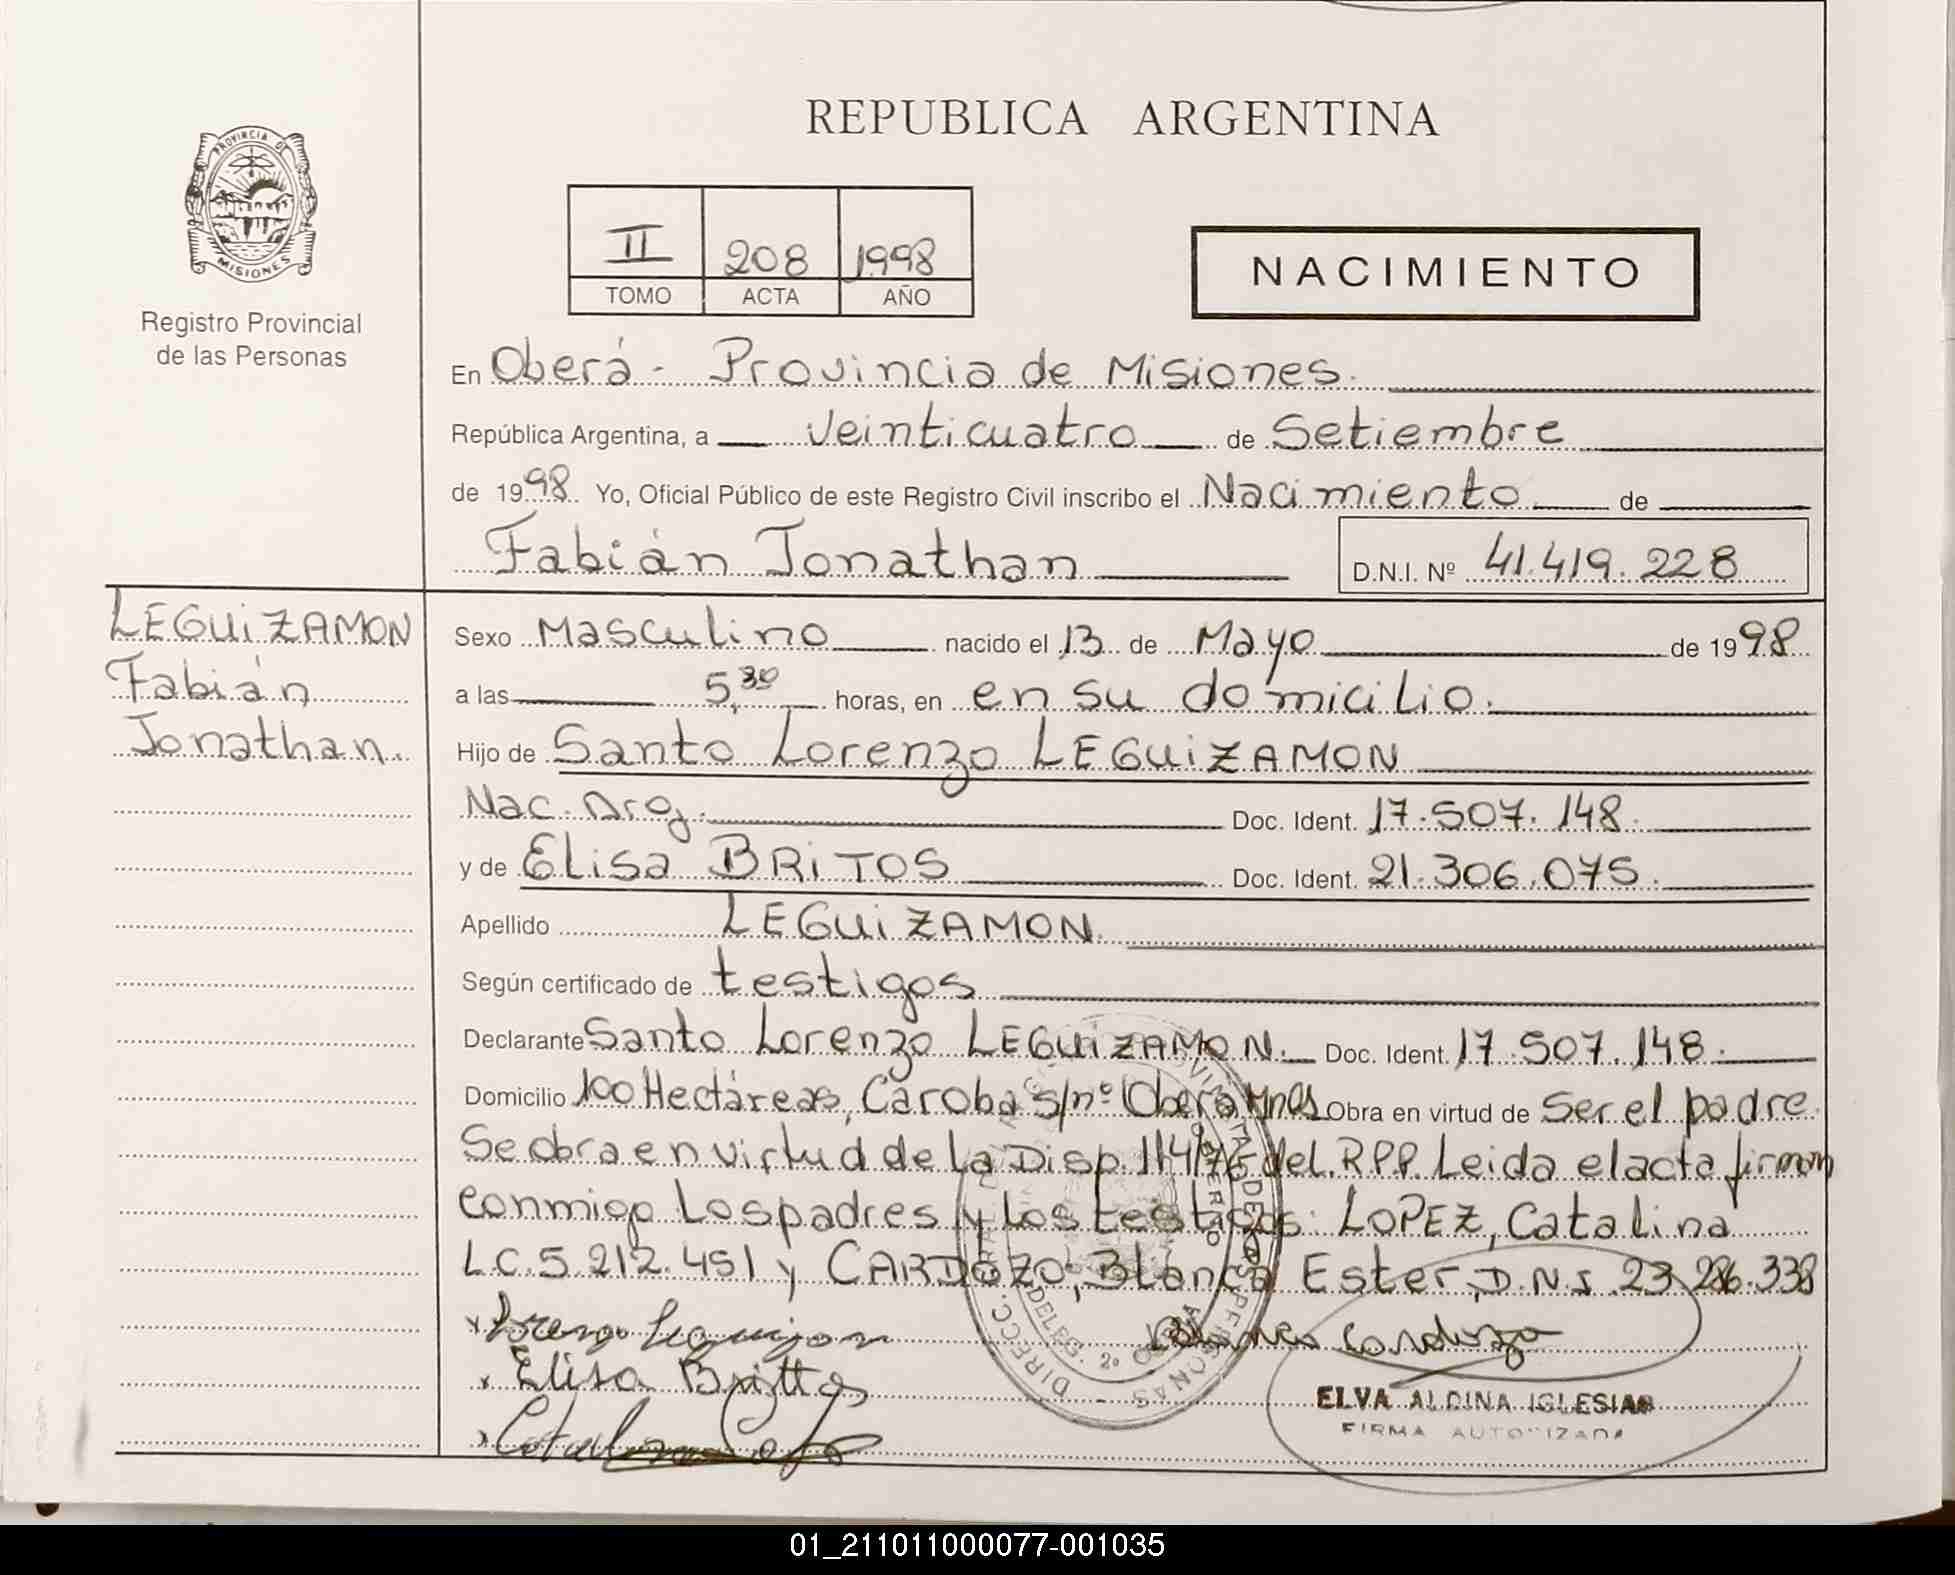 REPUBLICA ARGENTINA
PROVINCIA DE
MISIONES
Registro Provincial
de las Personas
II 208 1998
TOMO ACTA AÑO
NACIMIENTO
En Oberá - Provincia de Misiones.
República Argentina, a veinticuatro de Setiembre
de 1998 Yo, Oficial Público de este Registro Civil inscribo el Nacimiento de
Fabián Jonathan D.N.I. Nº 41.419.228
LEGUiZAMON
Fabián
Jonathan.
Sexo Masculino nacido el 13 de Mayo de 1998
a las 5,30 horas, en en su domicilio.
Hijo de Santo Lorenzo LEGUiZAMON
Nac. Arg. Doc. Ident. 17.507.148.
y de Elisa BRiTOS Doc. Ident. 21.306.075.
Apellido LEGUiZAMON.
Según certificado de testigos
Declarante Santo Lorenzo LEGUiZAMON. Doc. Ident. 17.507.148.
Domicilio 100 Hectáreas, Caroba s/nº Oberá Mnes Obra en virtud de Ser el padre.
Se obra en virtud de la Disp. 114/76 del R.P.P. Leida el acta firman
conmigo los padres y los testigos: LOPEZ, Catalina
L.C. 5.212.451 y CARDOZO, Blanca Ester, D.N.I. 23.286.338
Lorenzo Leguizamon
Blanca Cardozo
Elisa Brittos
ELVA ALDINA IGLESIAS
FIRMA AUTORIZADA
Catalina
01_211011000077-001035